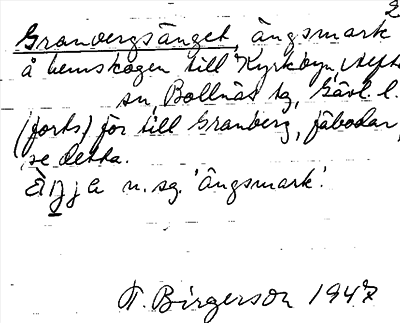 2
Granbergsänget, ängsmark
å hemskogen till Kyrkbyn, Alfta
sn, Bollnäs tg, Gävl. l.
(forts) för till Granberg, fäbodar,
se detta.
n. sg. 'ängsmark'.
T. Birgerson 1947